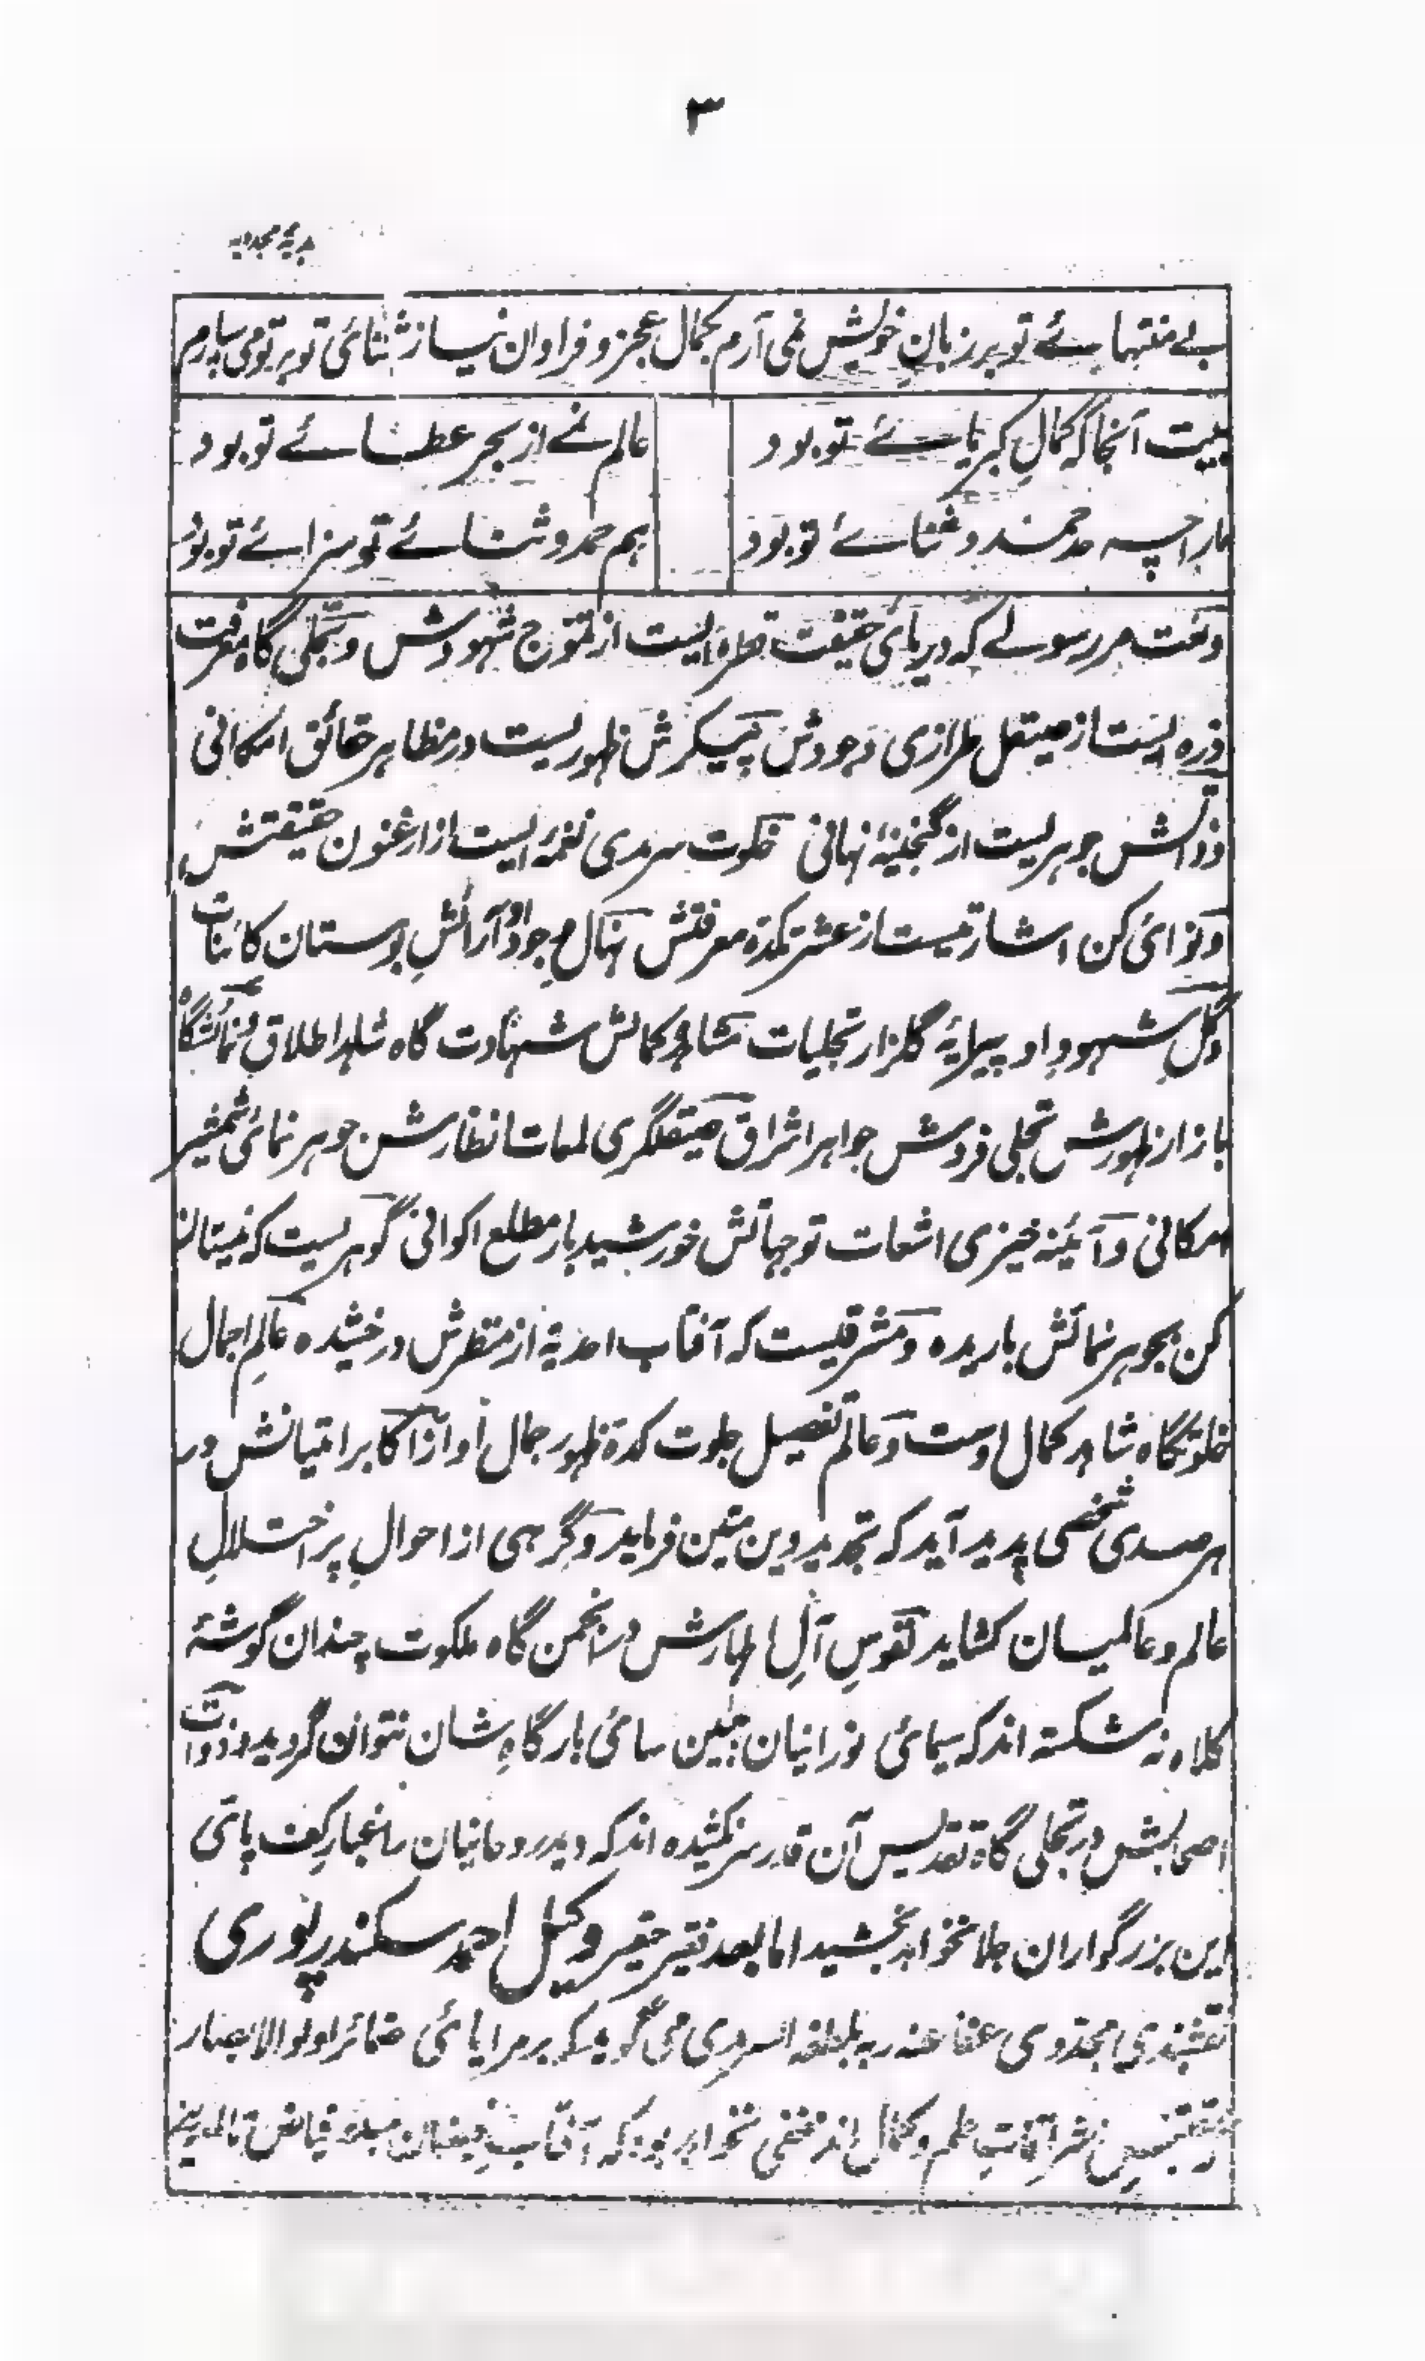 ۳
ہدیۂ مجددیہ
بے منتہائے تو بر زبانِ خویش نمی آرم بکمال عجز و فراوان نیاز ثنائی تو بر تو می سپارم
بیت آنجا کہ کمالِ کبریائے تو بود عالم نمے از بحر عطائے تو بود
ما را چہ حد حمد و ثنائے تو بود ہم حمد و ثنائے تو سزائے تو بود
و نعت مر رسولے کہ دریای حقیقت قطرہ ایست از تموج شہودش و تجلی گاہ معرفت
ذرہ ایست از صیقل طرازی وجودش پیکرش ظہوریست در مظاہر حقائق امکانی
و ذاتش جوہریست از گنجینۂ نہانی خلوت سرمدی نغمۂ ایست از ارغنون حقیقتش
و نوائی کن اشارتیست از عشرتکدۂ معرفتش نہال وجود او آرائشِ بوستان کائنات
و گل شہود او پیرایۂ گلزار تجلیات مشاہد کمالش شہادت گاہ شاہد اطلاق و نمائشگاہ
بازار ظہورش تجلی فروش جواہر اشراق صیقلگری لمعات انظارش جوہر نمائی شمشیر
امکانی و آئینہ خیزی اشعات توجہاتش خورشید بار مطلع اکوانی گوہریست کہ نیسان
کن بجوہر نمائش باریدہ و مشرقیست کہ آفتاب احدیۃ از منظرش درخشیدہ عالمِ اجمال
خلوتگاہ شاہد کمال اوست و عالم تفصیل جلوت کدۂ ظہور جمال او از اکابر امتیانش در
ہر صدی شخصی پدید آید کہ تجدید دین متین فرماید و گرہی از احوالِ پر اختلالِ
عالم و عالمیان کشاید نفوسِ آلِ اطہارش در انجمن گاہ ملکوت چندان گوشۂ
کلاہ نہ شکستہ اند کہ سیمائی نورانیان جبین سائی بارگاہِ شان نتوان گردید و ذوات
اصحابش در تجلی گاہ تقدیس آن قدر سر نکشیدہ اند کہ دیدہ روحانیان را غبار کف پائی
این بزرگواران جلا نخواہد بخشید اما بعد فقیر حقیر وکیل احمد سکندرپوری
نقشبندی مجددی عفا عنہ ربہ بلطفہ السرمدی می گوید کہ بر مرایائی ضمائر اولو الابصار
نشر آفتاب علم و کمال اند مخفی نخواہد بود کہ آفتاب فیضان مبدء فیاض